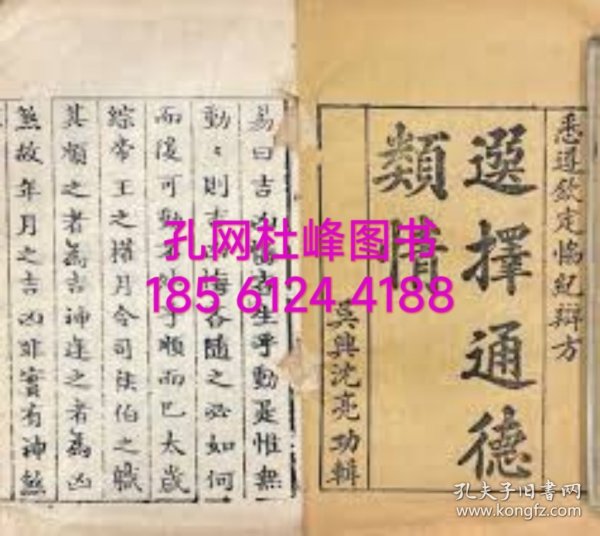 悉遵欽定恊紀辯方
選擇通德
類情
吳興沈亮功輯
易曰吉凶悔吝生乎動是惟無
動〻則吉悔吝隨之必如何
而後可動乎順而已太歲
綜帝王之月令司侯伯之職
其順之者為吉神逢之者為凶
煞故年月之吉凶非實有神煞
孔网杜峰图书
185 6124 4188
孔夫子旧书网
www.kongfz.com